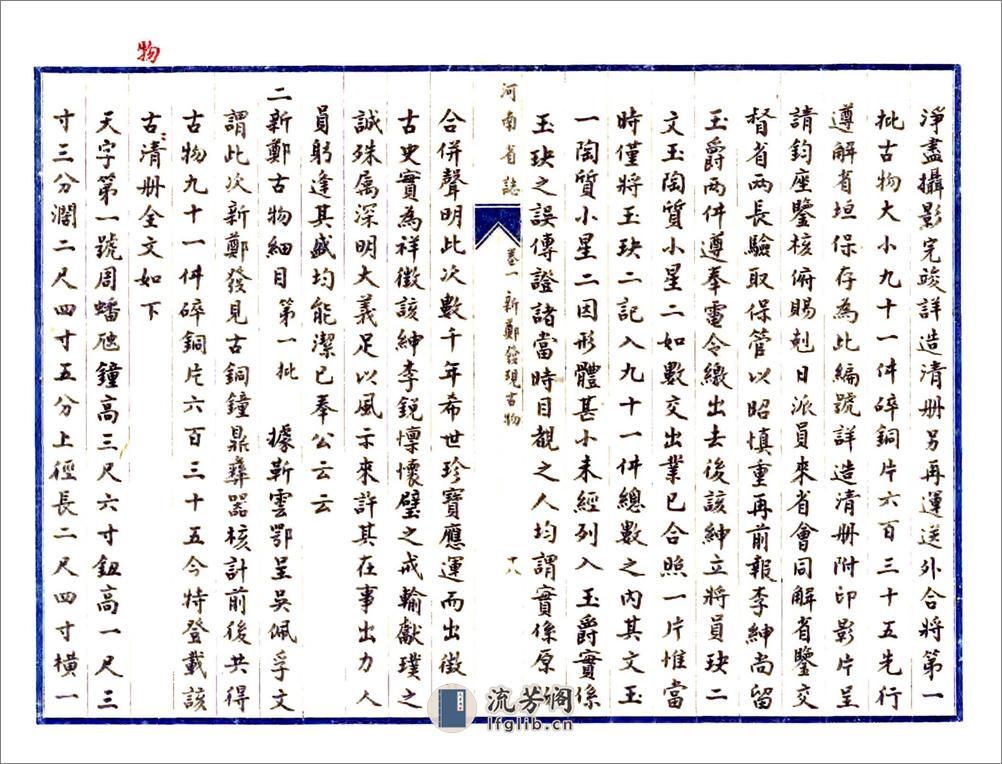 淨盡攝影完竣詳造清册另再運送外合將第一
批古物大小九十一件碎銅片六百三十五先行
遵解省垣保存為此編號詳造清册附印影片呈
請鈞座鑒核俯賜剋日派員來省會同解省鑒交
督省兩長驗取保管以昭慎重再前報李紳尚留
玉爵兩件遵奉電令繳出去後該紳立將員玦二
文玉陶質小星二如數交出業已合照一片惟當
時僅將玉玦二記入九十一件總數之內其文玉
一陶質小星二因形體甚小未經列入玉爵實係
玉玦之誤傳證諸當時目覩之人均謂實係原
河南省誌
卷一 新鄭發現古物
十八
合併聲明此次數千年希世珍寶應運而出徵
古史實為祥徵該紳李銳懍懷璧之戒輸獻璞之
誠殊屬深明大義足以風示來許其在事出力人
員躬逢其盛均能潔已奉公云云
二新鄭古物細目 第一批 據靳雲鄂呈吳佩孚文
謂此次新鄭發見古銅鐘鼎彝器核計前後共得
古物九十一件碎銅片六百三十五今特登載該
古清册全文如下
物
天字第一號周蟠虺鐘高三尺六寸鈕高一尺三
寸三分濶二尺四寸五分上徑長二尺四寸橫一
流芳閣
lfglib.cn